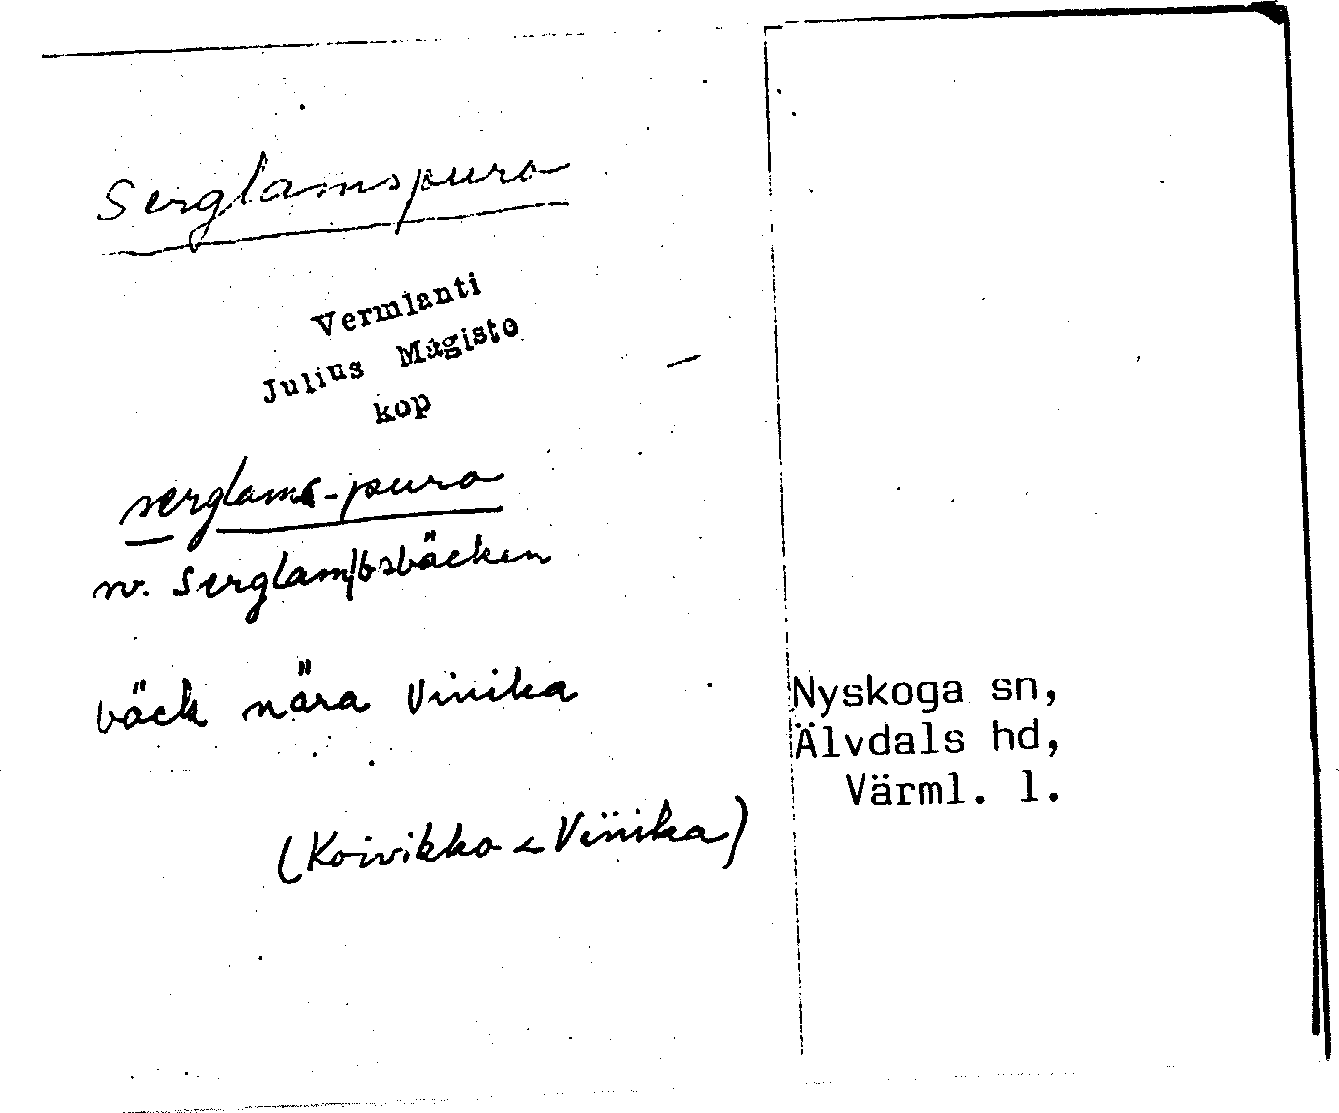 Serglamspuro
Vermlanti
Julius Mägiste
kop
serglams-puro
rv. Serglam/bsbäcken
bäck nära Viinika
(Koivikko < Viinika)
Nyskoga sn,
Älvdals hd,
Värml. l.